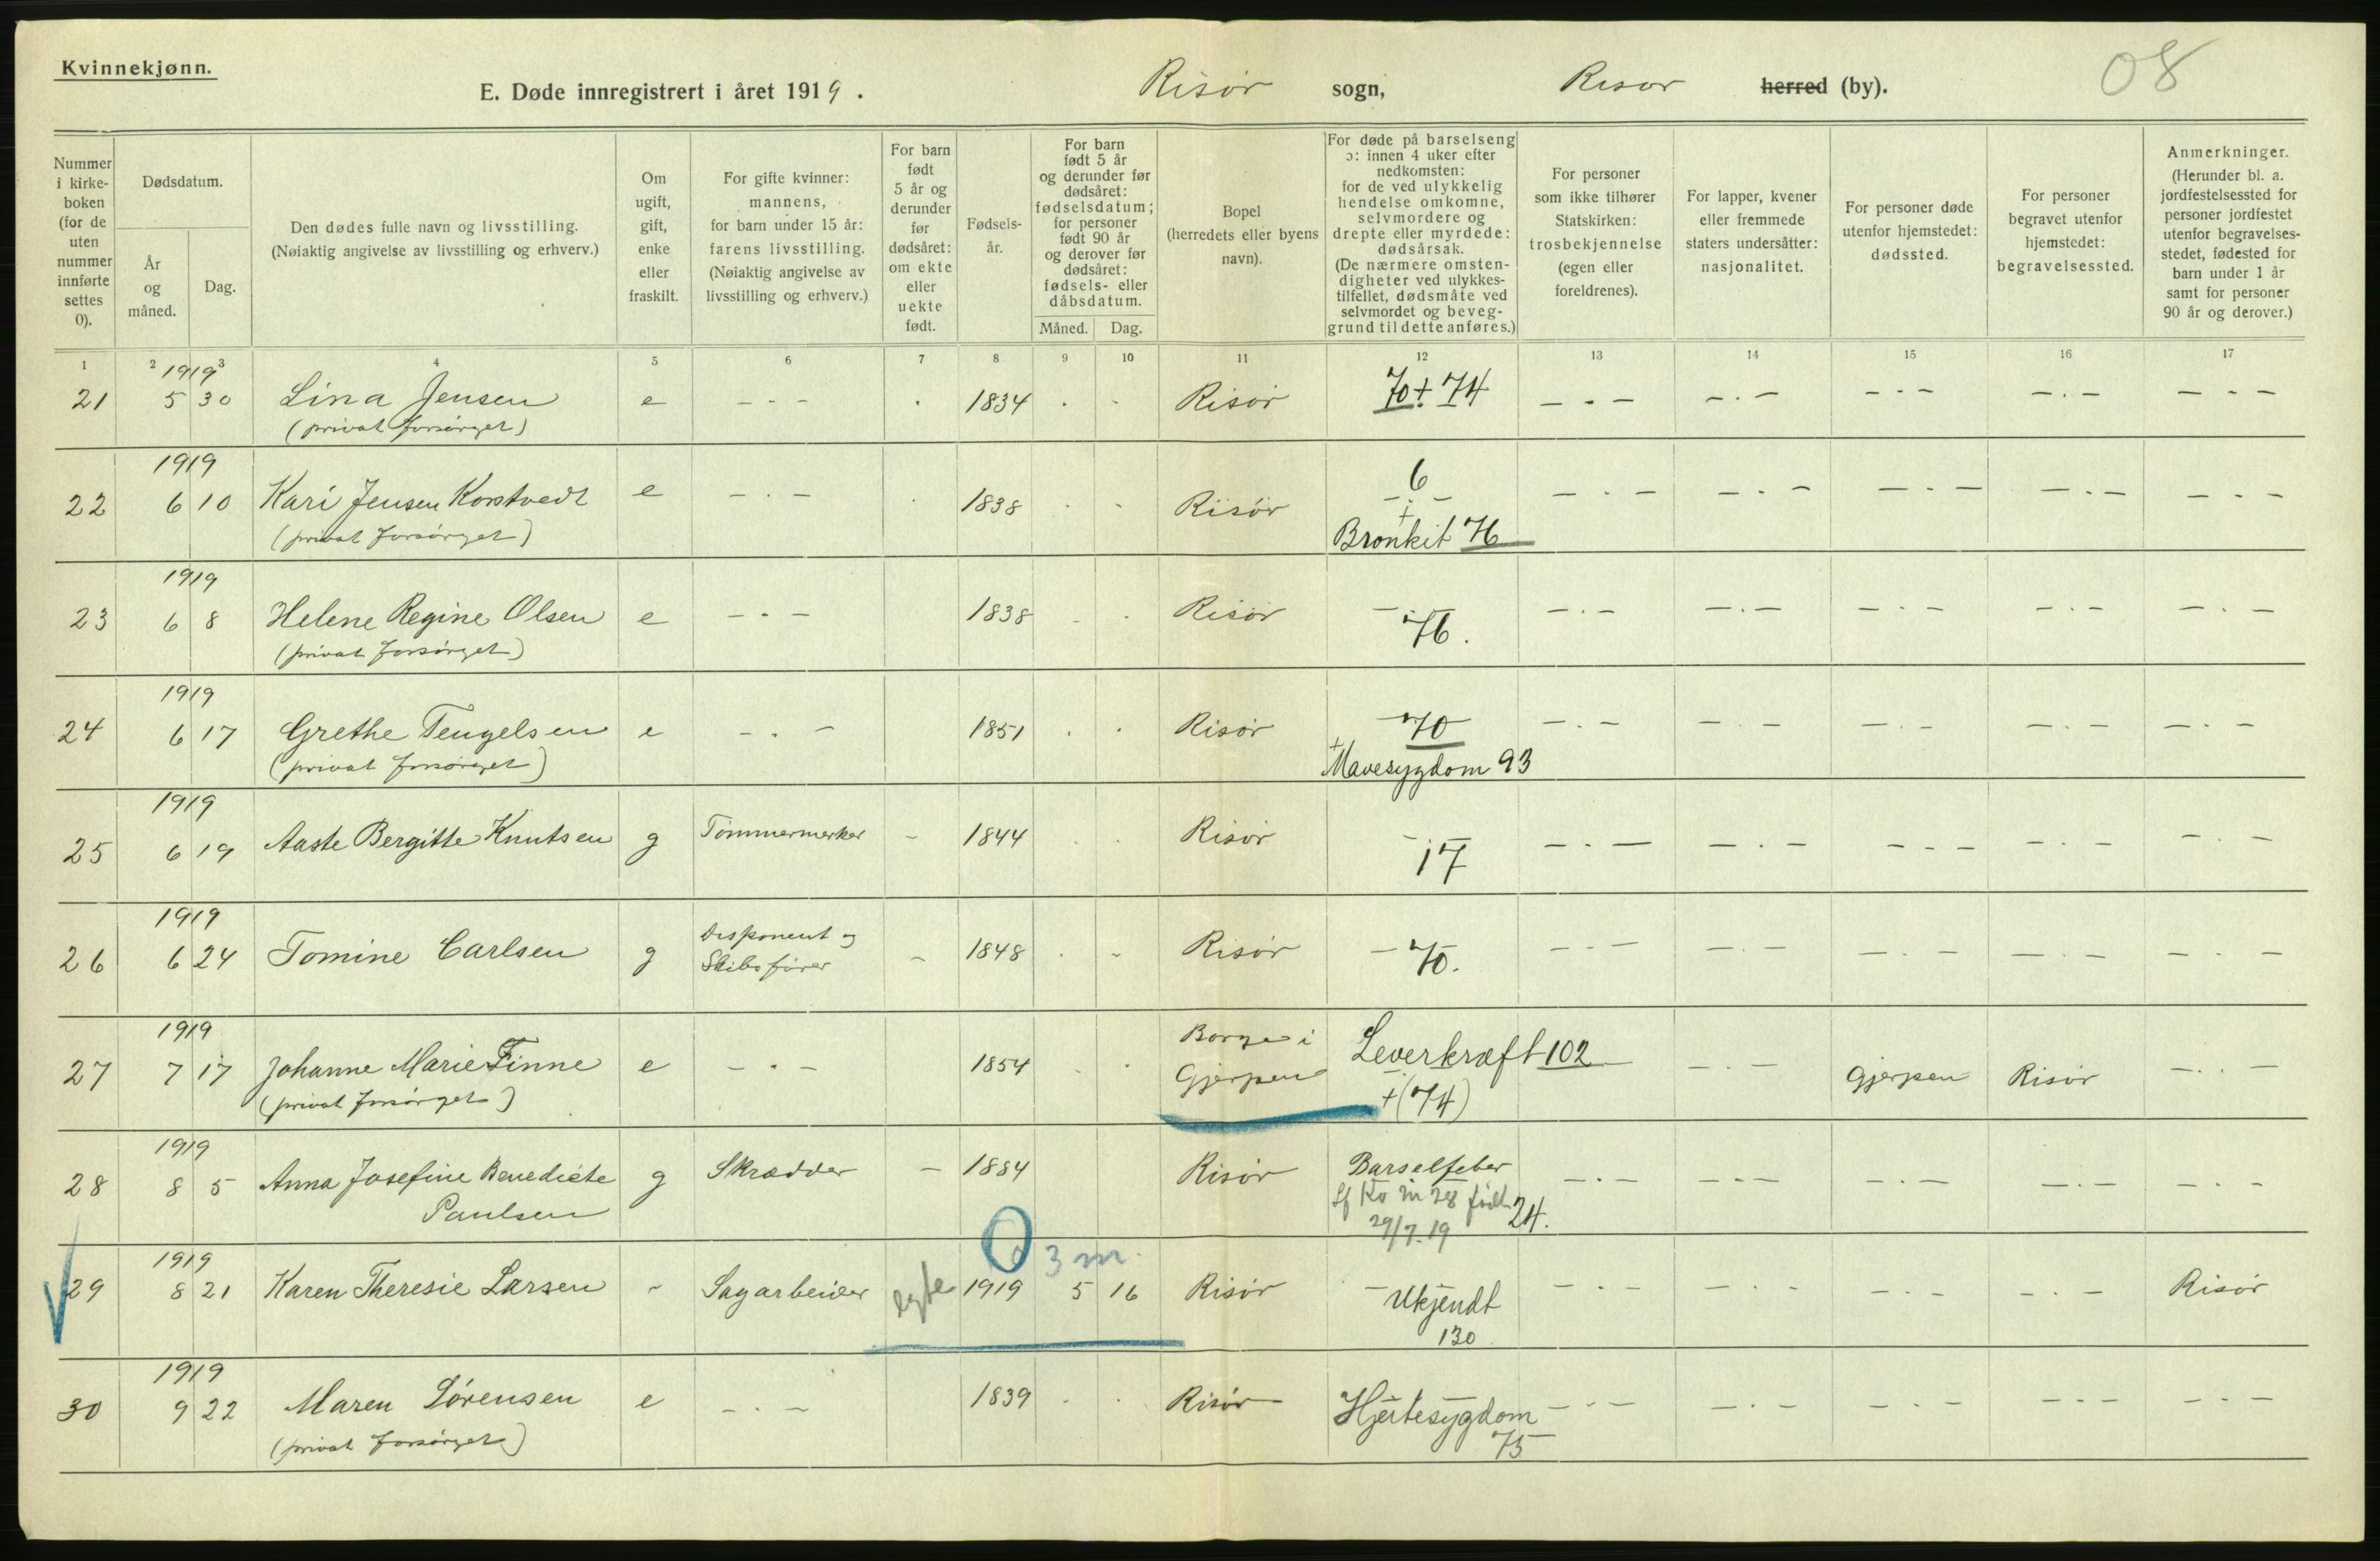 Kvinnekjønn.
E. Døde innregistrert i året 1919. Risør sogn, Risør herred (by). 08
Nummer i kirke- boken (for de uten nummer innførte settes 0).
Dødsdatum.
År og måned.
Dag.
Den dødes fulle navn og livsstilling.
(Nøiaktig angivelse av livsstilling og erhverv.)
Om ugift, gift, enke eller fraskilt.
For gifte kvinner: mannens, for barn under 15 år: farens livsstilling. (Nøiaktig angivelse av livsstilling og erhverv.)
For barn født 5 år og derunder før dødsåret: om ekte eller uekte født.
Fødsels- år.
For barn født 5 år og derunder før dødsåret: fødselsdatum; for personer født 90 år og derover før dødsåret: fødsels- eller dåbsdatum.
Måned. Dag.
Bopel (herredets eller byens navn).
For døde på barselseng ɔ: innen 4 uker efter nedkomsten: for de ved ulykkelig hendelse omkomne, selvmordere og drepte eller myrdede: dødsårsak. (De nærmere omsten- digheter ved ulykkes- tilfellet, dødsmåte ved selvmordet og beveg- grund til dette anføres.)
For personer som ikke tilhører Statskirken: trosbekjennelse (egen eller foreldrenes).
For lapper, kvener eller fremmede staters undersåtter: nasjonalitet.
For personer døde utenfor hjemstedet: dødssted.
For personer begravet utenfor hjemstedet: begravelsessted.
Anmerkninger. (Herunder bl. a. jordfestelsessted for personer jordfestet utenfor begravelses- stedet, fødested for barn under 1 år samt for personer 90 år og derover.)
1 2 3 4 5 6 7 8 9 10 11 12 13 14 15 16 17
1919
21 5 30 Lina Jensen e - . - 1834 Risør 70 + 74
(privat forsørget)
1919
22 6 10 Kari Jensen Korstvedt e - . - 1838 Risør 6
(privat forsørget) + Bronkit 76
1919
23 6 8 Helene Regine Olsen e - . - 1838 Risør 76.
(privat forsørget)
1919
24 6 17 Grethe Tengelsen e - . - 1851 Risør 70
(privat forsørget) + Mavesygdom 93
1919
25 6 19 Aaste Bergitte Knutsen g Tømmermerker - 1844 Risør 17
1919
26 6 24 Tomine Carlsen g Disponent og Skibsfører - 1848 Risør 70.
1919
27 7 17 Johanne Marie Finne e - . - 1854 Borge i Gjerpen Leverkræft 102 Gjerpen Risør
(privat forsørget) + (74)
1919
28 8 5 Anna Josefine Benedicte g Skrædder - 1884 Risør Barselfeber
Paulsen Lf Kv nr 28 født 24.
29/7 19
1919 3 m.
29 8 21 Karen Theresie Larsen - Sagarbeider egte 1919 5 16 Risør Ukjendt Risør
130
1919
30 9 22 Maren Sørensen e - . - 1839 Risør Hjertesygdom
(privat forsørget) 75